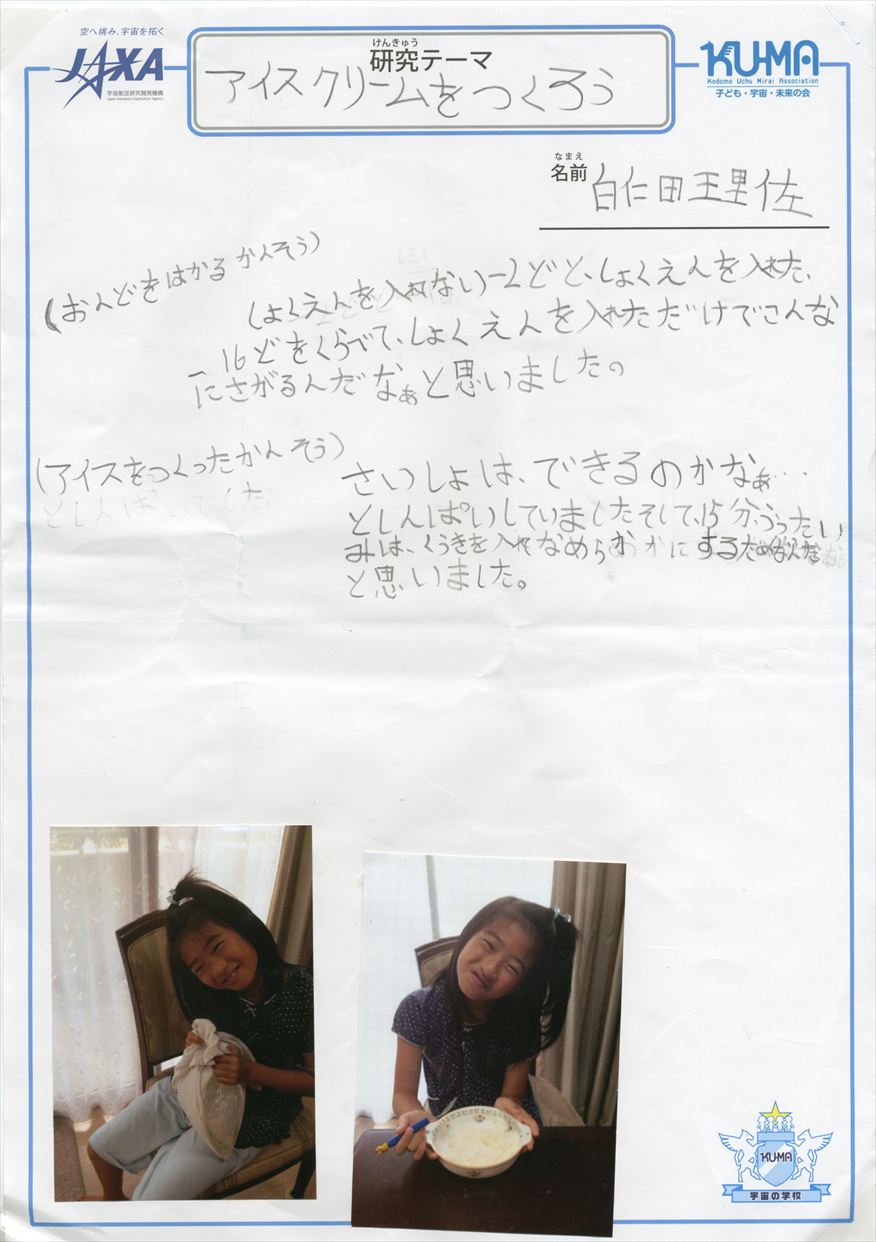 空へ挑み、宇宙を拓く
JAXA
宇宙航空研究開発機構
Japan Aerospace Exploration Agency
けんきゅう
研究テーマ
アイスクリームをつくろう
KU-MA
Kodomo Uchu Mirai Association
子ども・宇宙・未来の会
なまえ
名前 白仁田王里佐
(おんどをはかるかんそう)
しょくえんを入れない-2どと、しょくえんを入れた、
-16どをくらべて、しょくえんを入れただけでこんな
にさがるんだなぁと思いました。
(アイスをつくったかんそう)
としんぱいでした
さいしょは、できるのかなぁ…
としんぱいしていましたそして、15分、ふったい
みは、くうきを入れなめらかにするためなんだなぁ
と思いました。
KU-MA
宇宙の学校